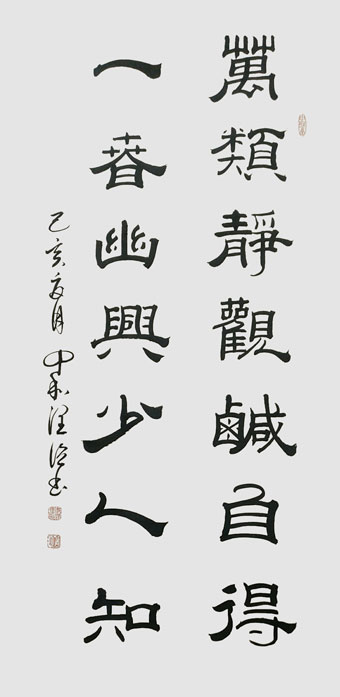 萬類靜觀鹹自得
一春幽興少人知
己亥夏月